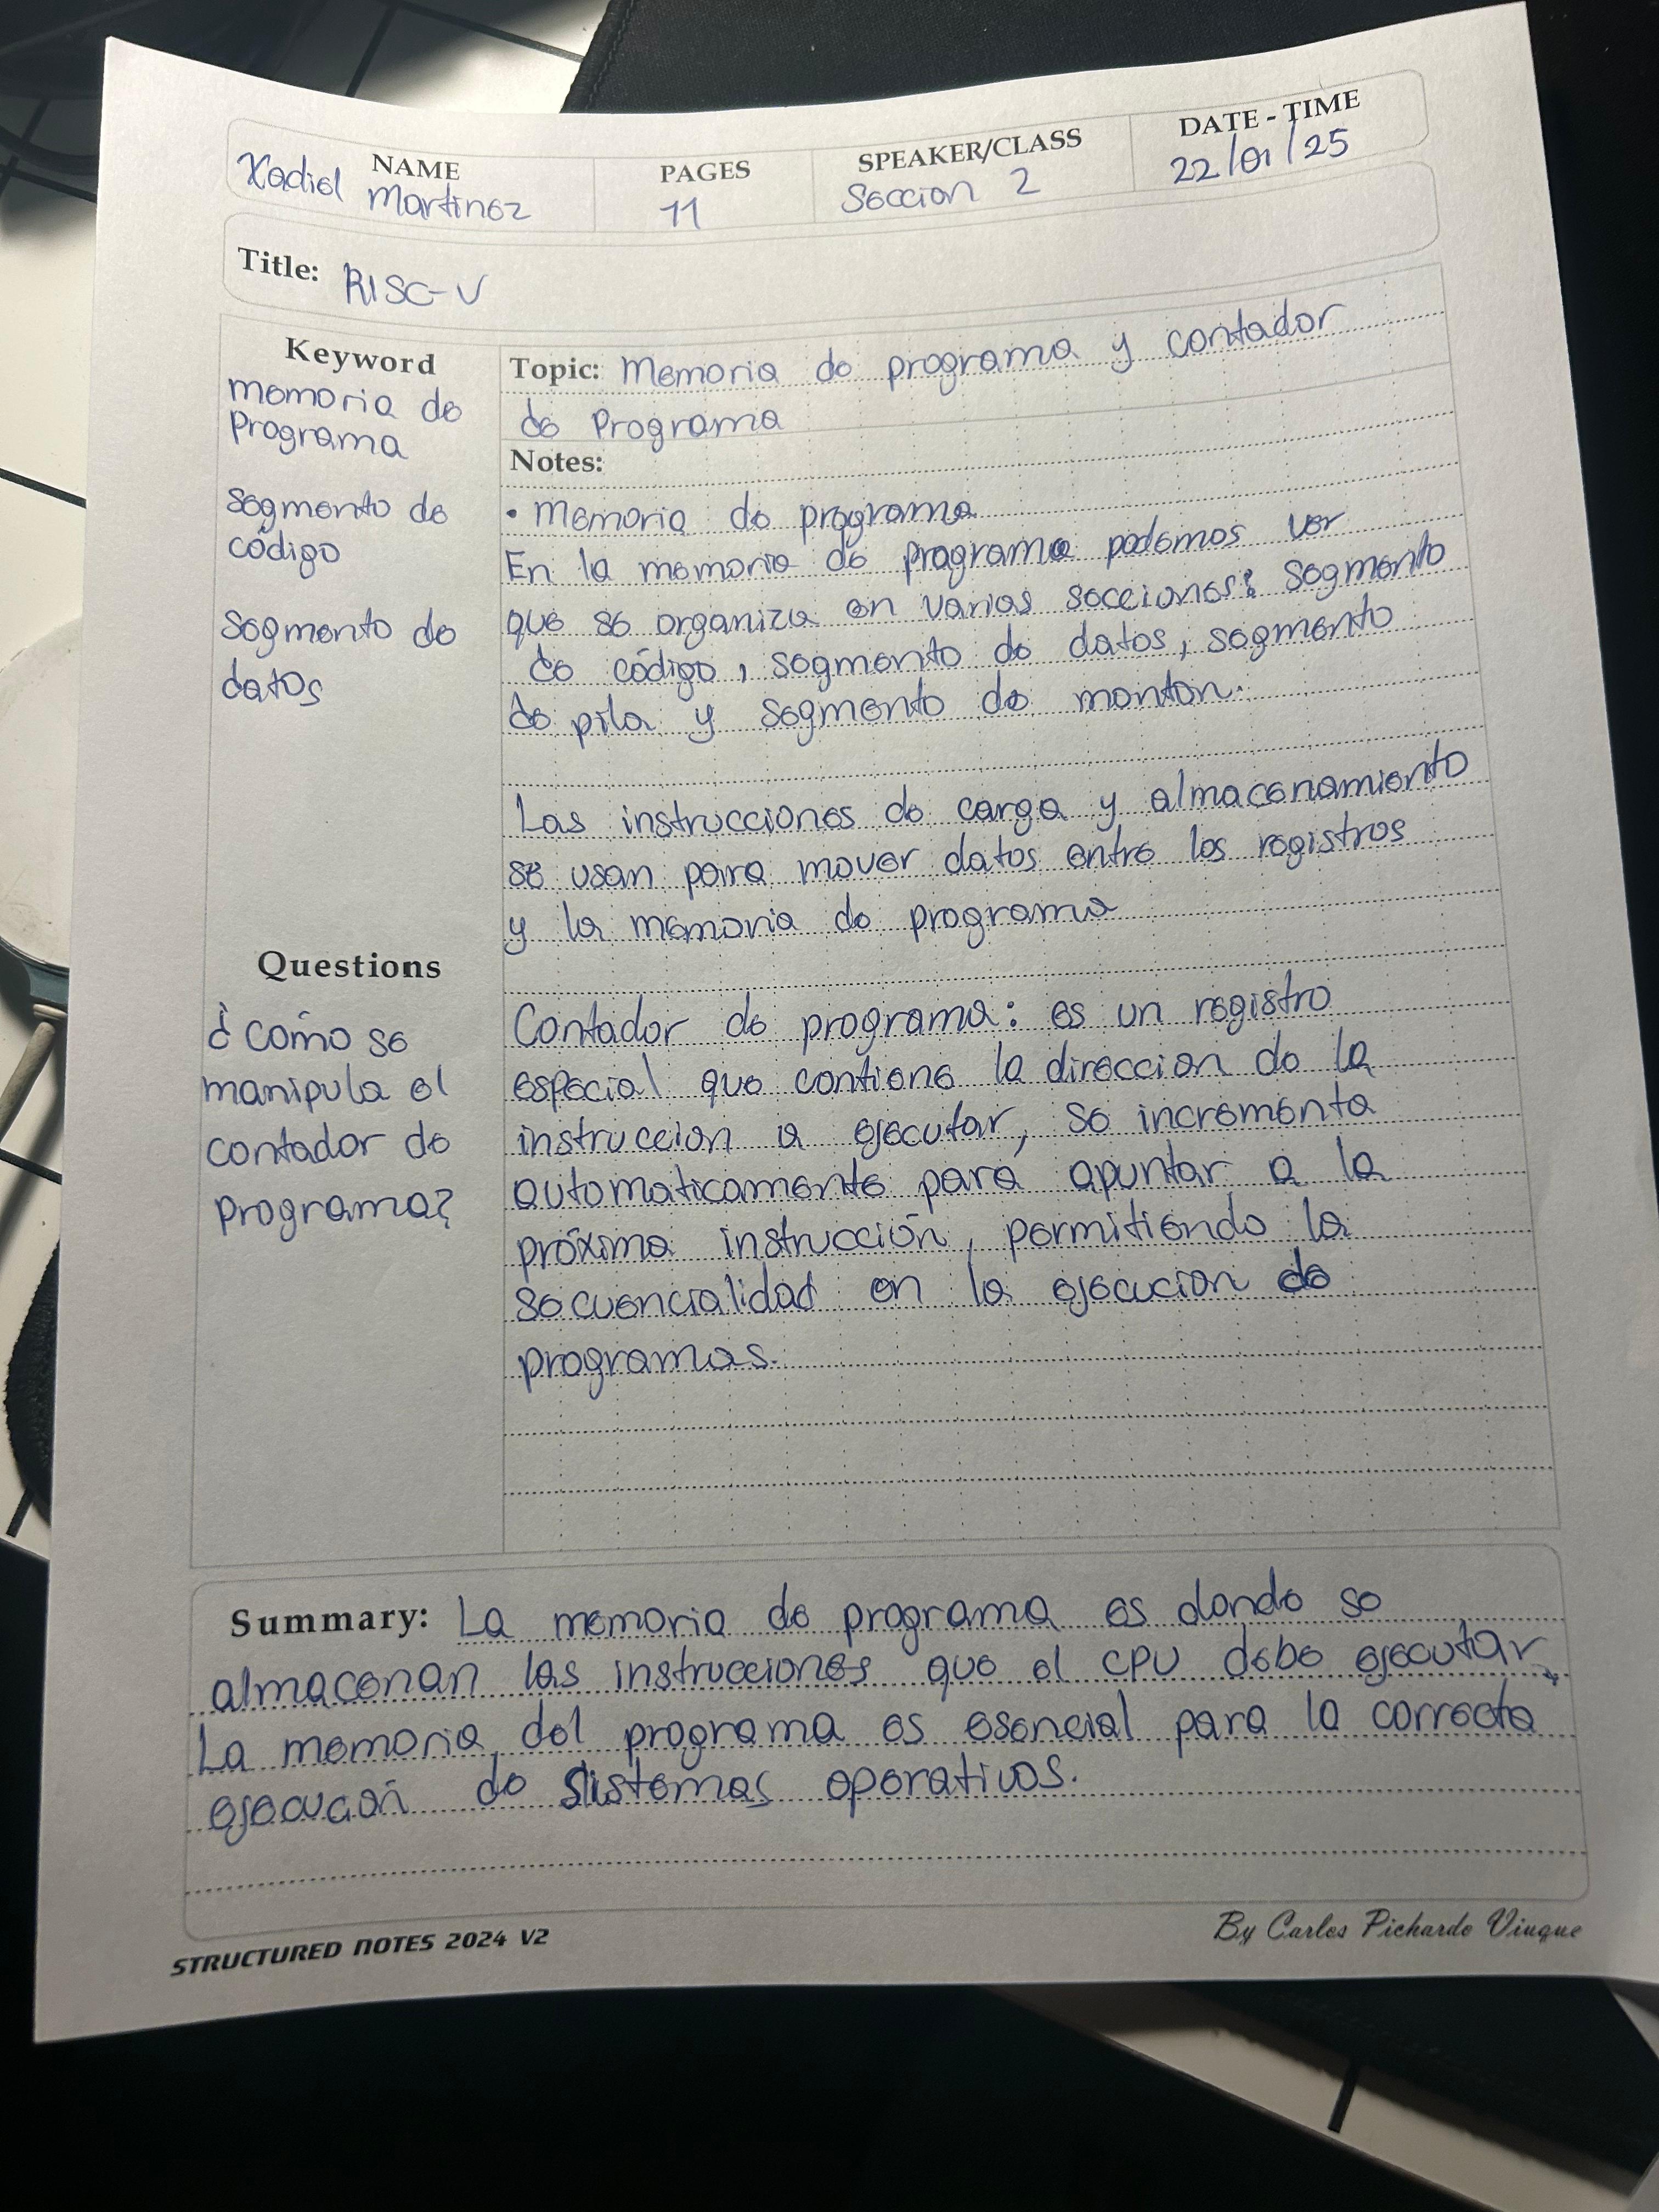 NAME
Xadiel Martinez
PAGES
11
SPEAKER/CLASS
Seccion 2
DATE - TIME
22/01/25
Title: RISC-V
Keyword
memoria de
Programa
Segmento de
código
Segmento de
datos
Questions
¿Cómo se
manipula el
contador de
programa?
Topic: Memoria de programa y contador
de Programa
Notes:
• Memoria de programa
En la memoria de programa podemos ver
que se organiza en varias secciones: segmento
de código, segmento de datos, segmento
de pila y segmento de monton.
Las instrucciones de carga y almacenamiento
se usan para mover datos entre los registros
y la memoria de programa
Contador de programa: es un registro
especial que contiene la direccion de la
instruccion a ejecutar, se incrementa
automaticamente para apuntar a la
próxima instrucción, permitiendo la
secuencialidad en la ejecucion de
programas.
Summary: La memoria de programa es donde se
almacenan las instrucciones que el CPU debe ejecutar.
La memoria del programa es esencial para la correcta
ejecución de sistemas operativos.
STRUCTURED NOTES 2024 V2
By Carlos Pichardo Viuque